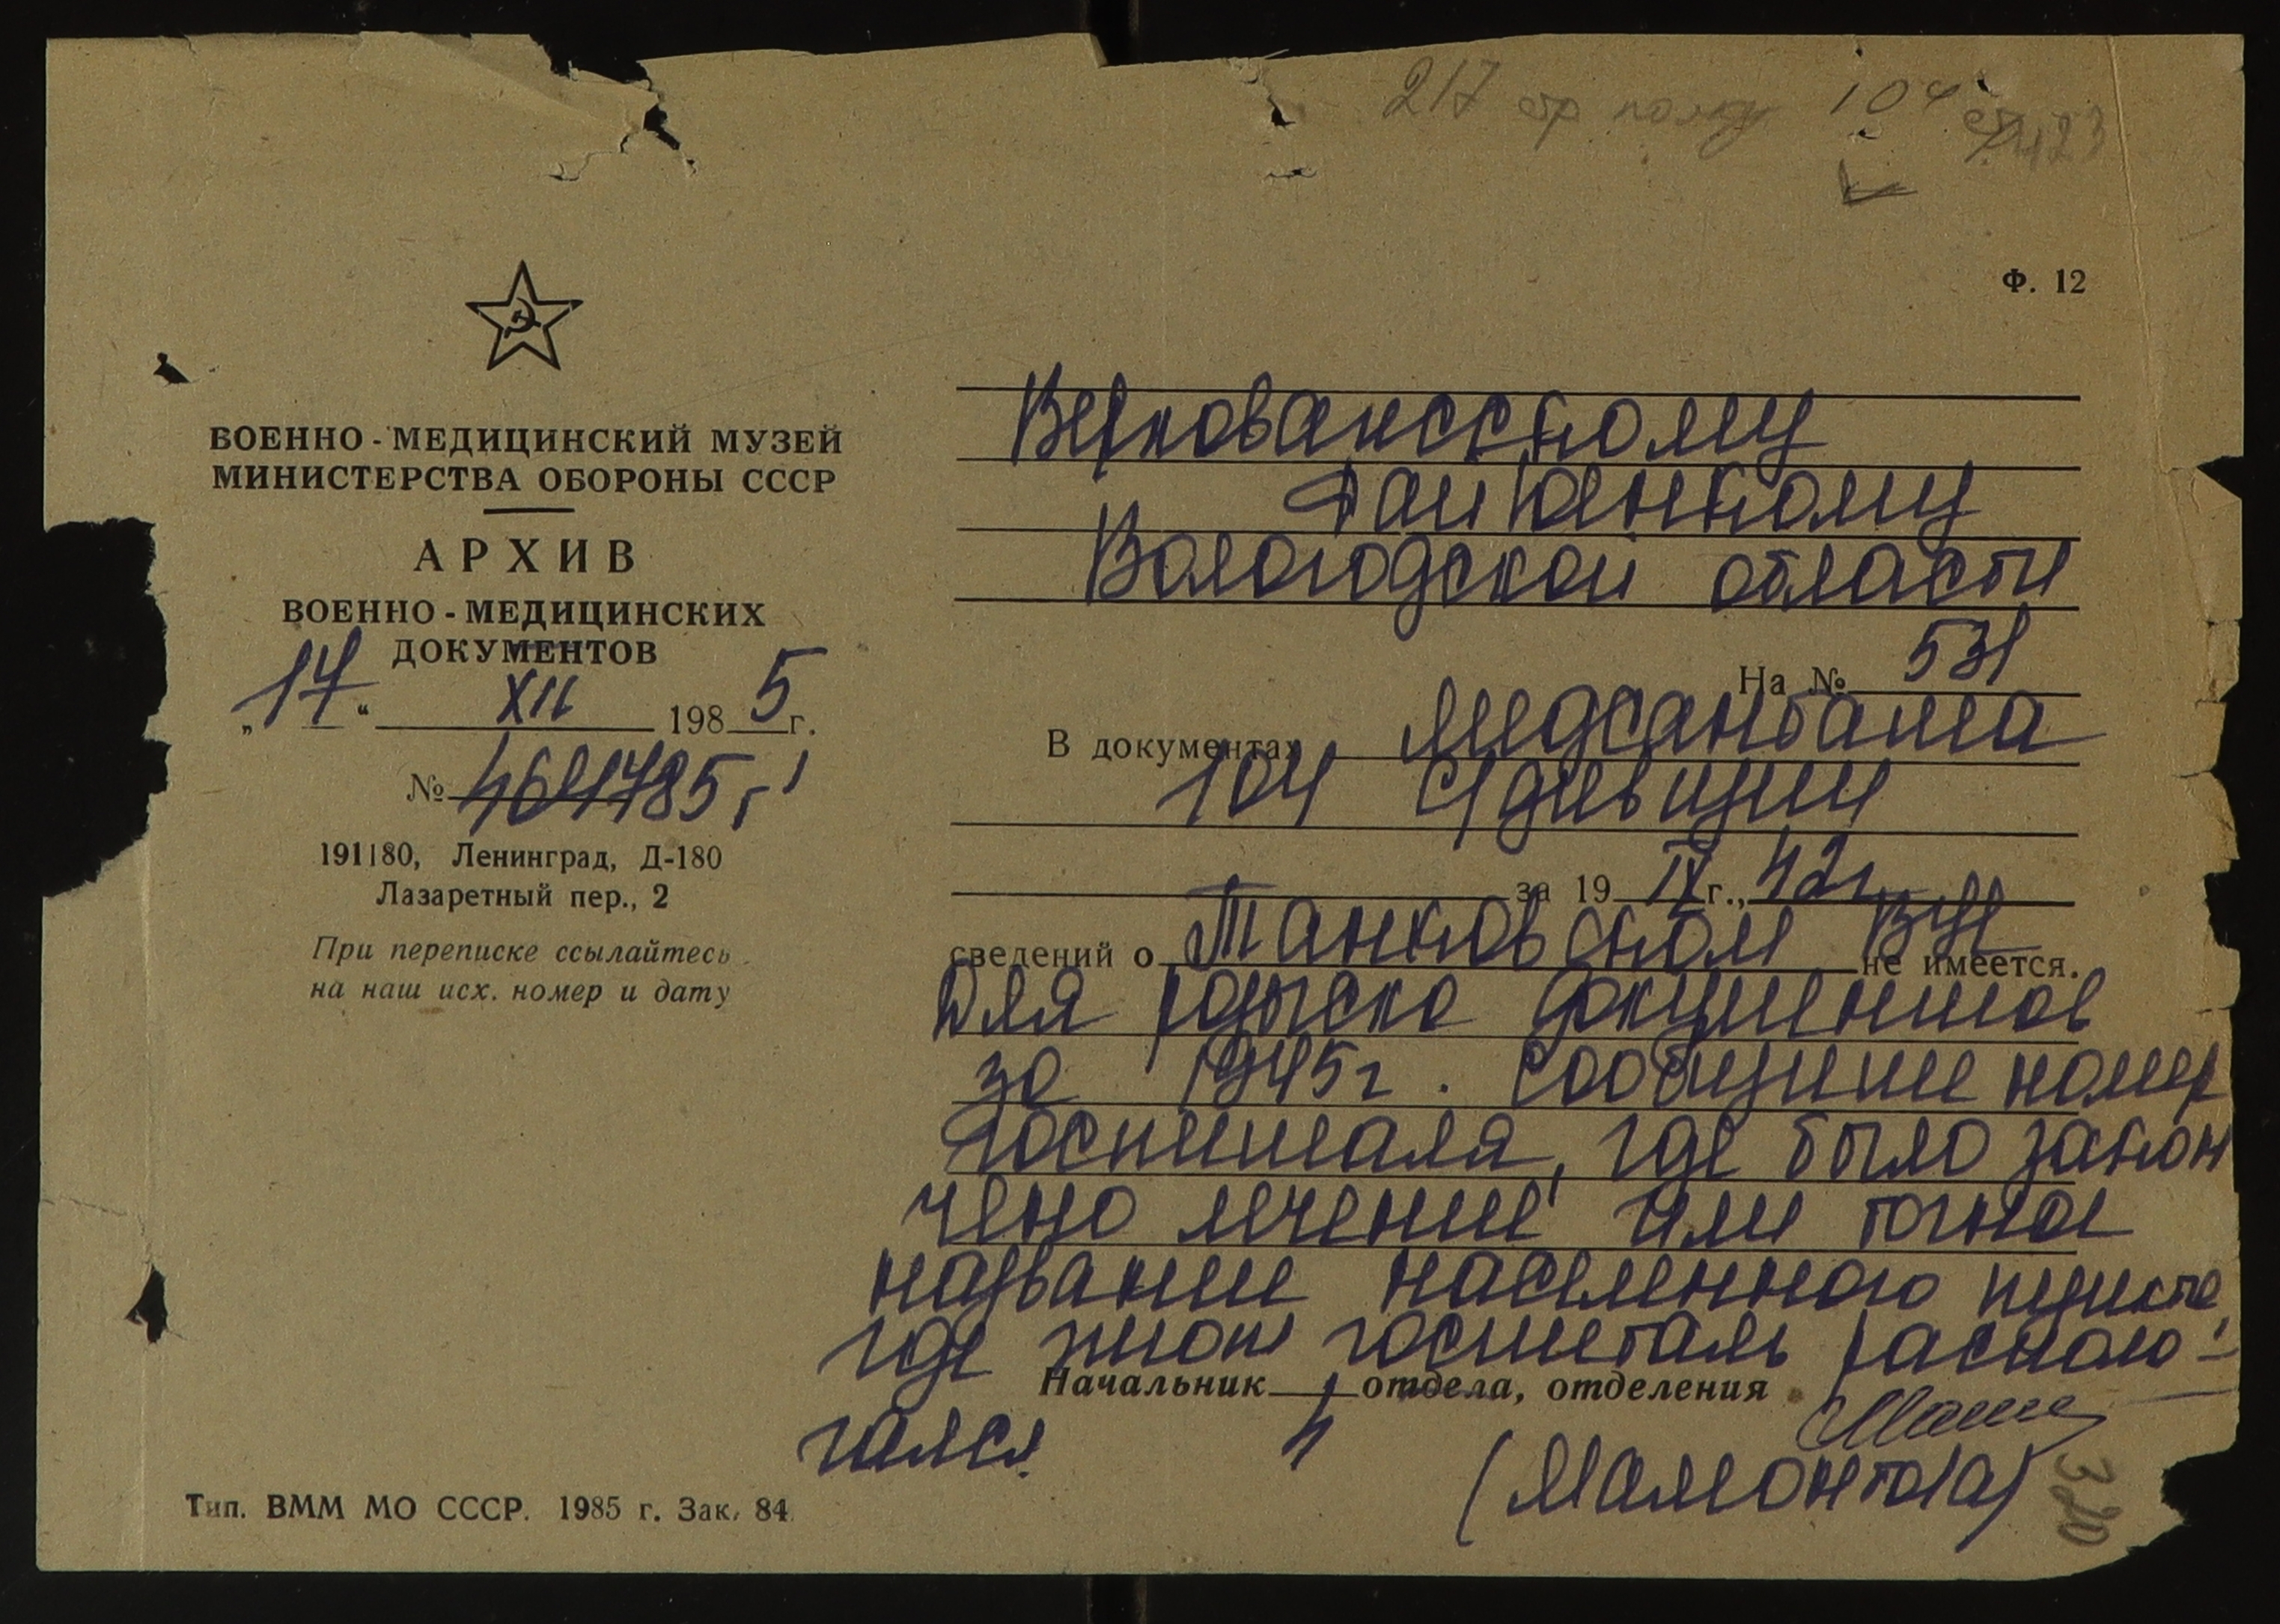 217 стр полку 104
Ф. 12
ВОЕННО-МЕДИЦИНСКИЙ МУЗЕЙ
МИНИСТЕРСТВА ОБОРОНЫ СССР
АРХИВ
ВОЕННО-МЕДИЦИНСКИХ
ДОКУМЕНТОВ
„17“ XII 1985 г.
№
191180, Ленинград, Д-180
Лазаретный пер., 2
При переписке ссылайтесь
на наш исх. номер и дату
Тип. ВММ МО СССР. 1985 г. Зак. 84
Верховажскому
Райвоенкому
Вологодской области
На № 531
В документах медсанбата
104 сдивизии
за 19 IV г., 42г
сведений о Танковском не имеется.
Для розыска документов
за 1945г. сообщите номер
госпиталя, где было закон
чено лечение или точное
название населенного пункта,
где этот госпиталь располо-
гался.
Начальник 4 отдела, отделения
(Мамонтова)
320